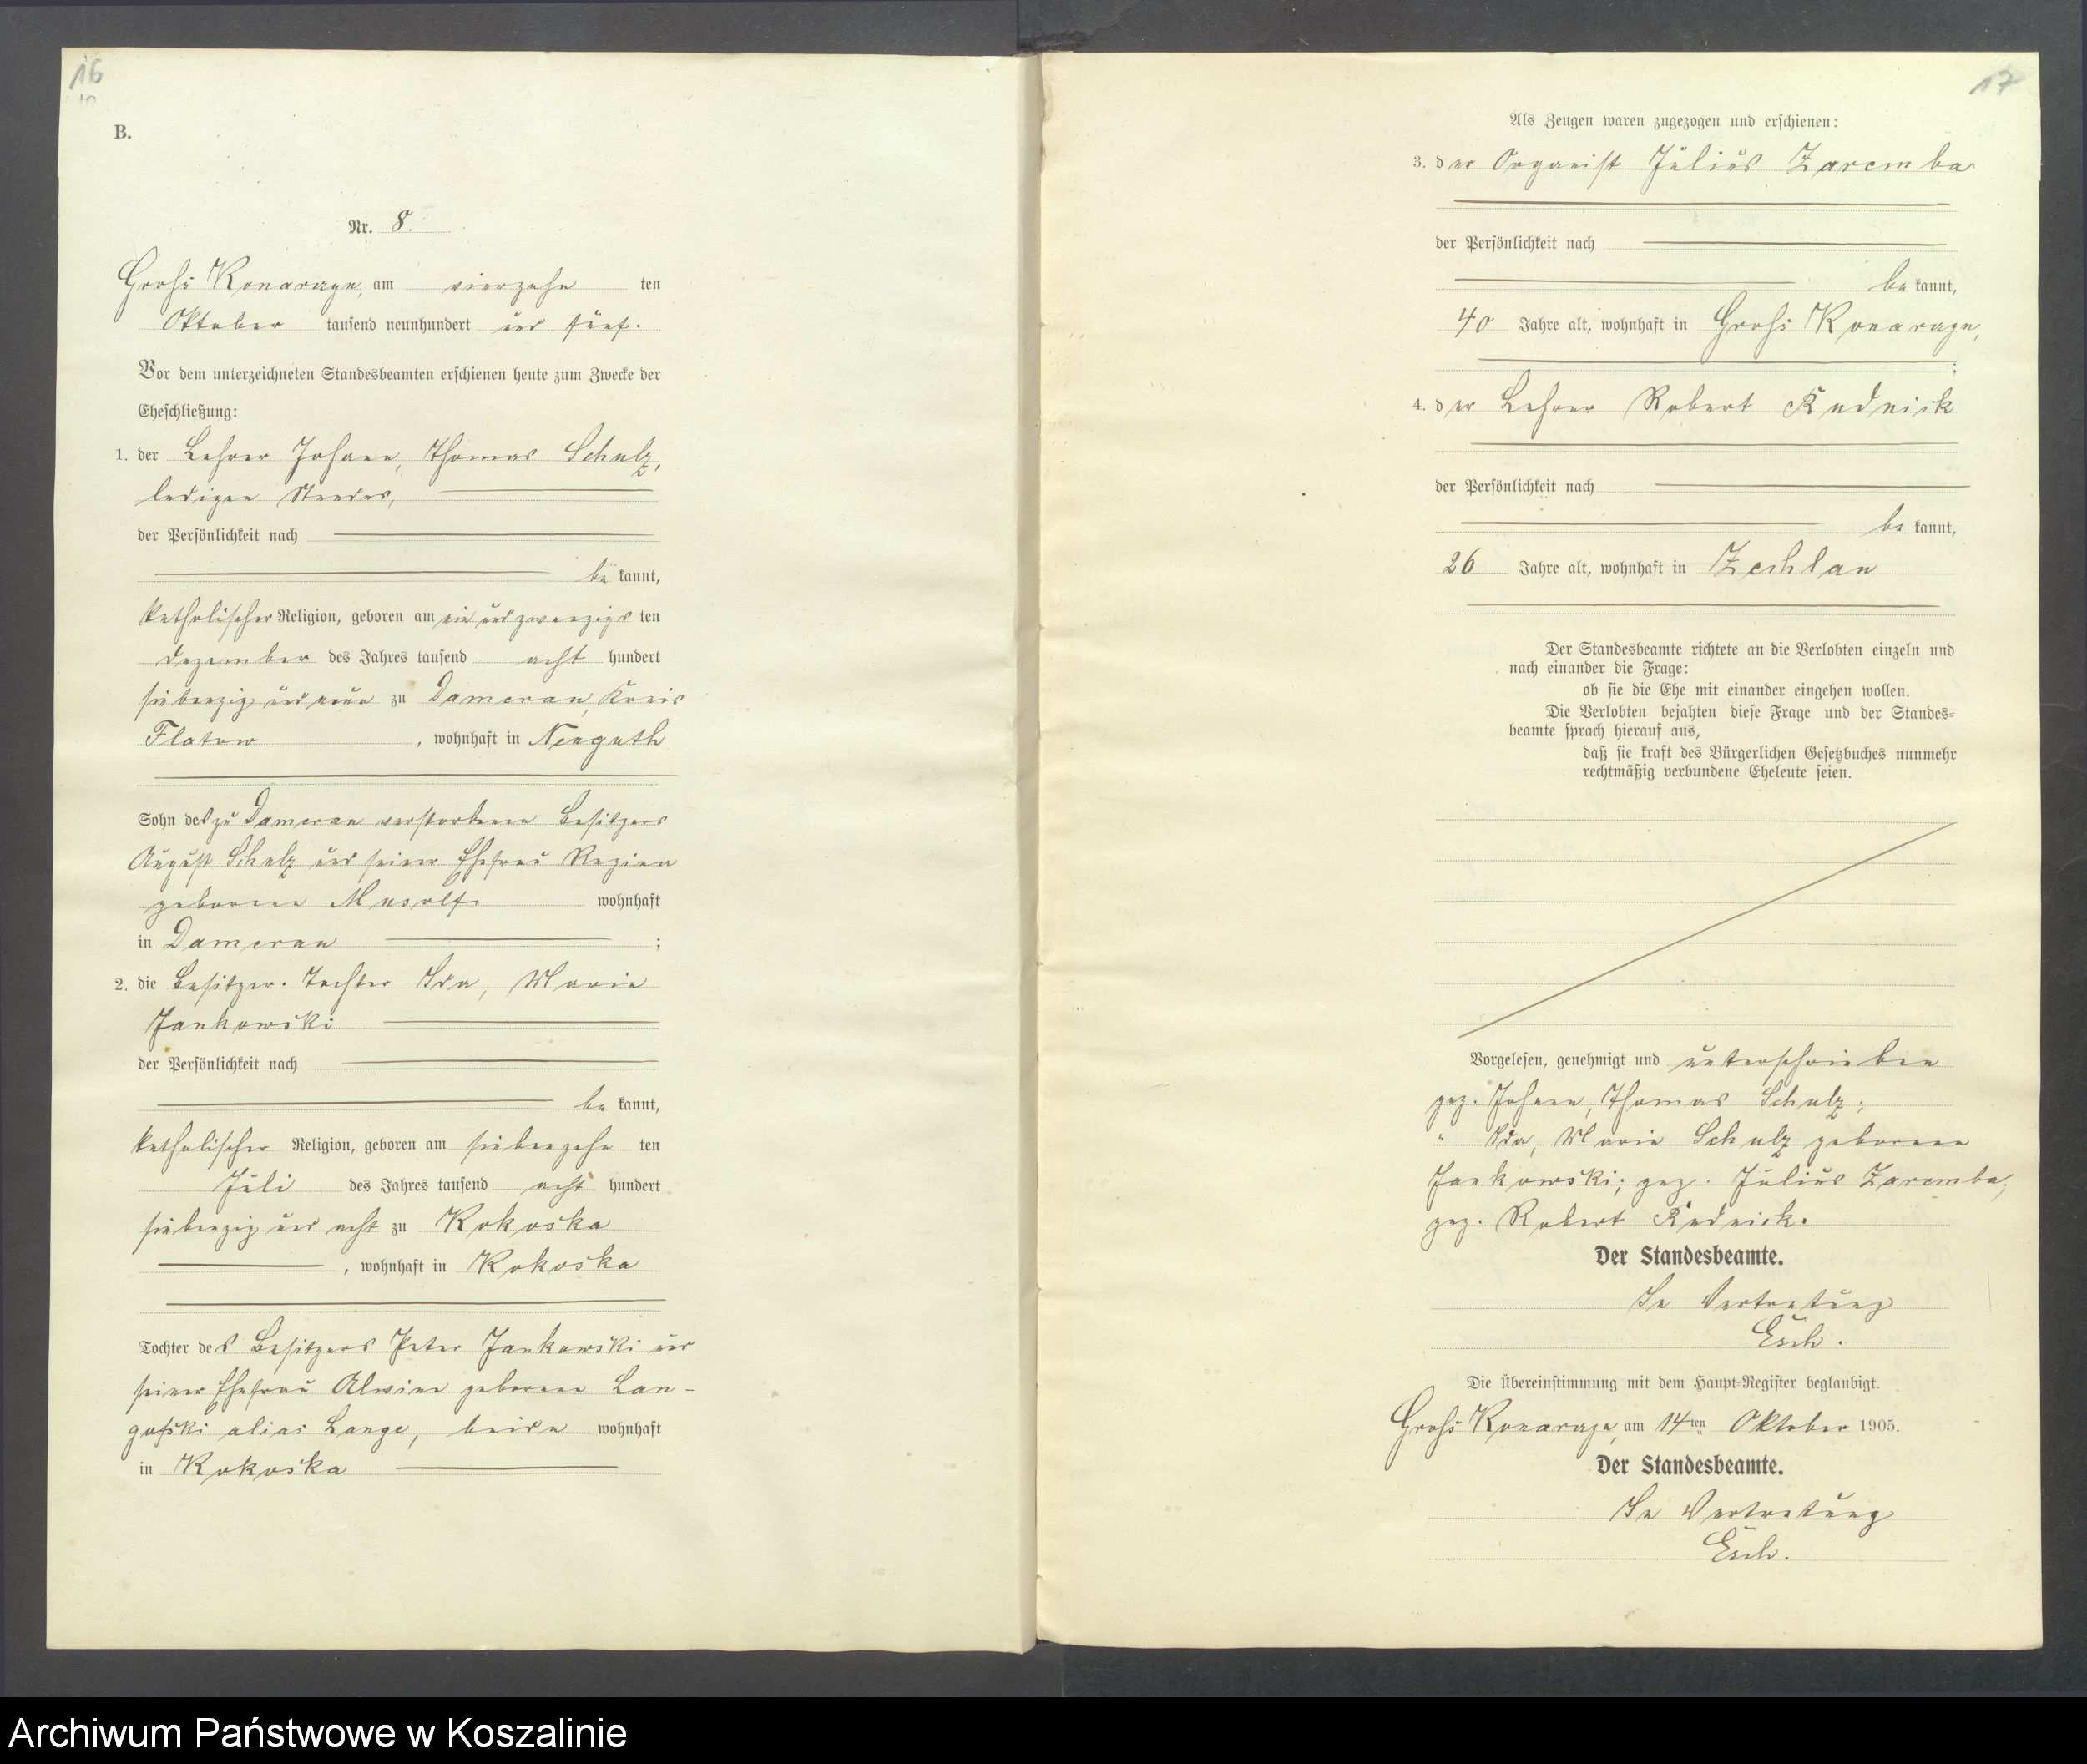 16
10
B.
Nr. 8.
Groß Konarzyn, am vierzehn ten
Oktober tausend neunhundert und fünf.
Vor dem unterzeichneten Standesbeamten erschienen heute zum Zwecke der
Eheschließung:
1. der Lehrer Johann, Thomas Schulz,
ledigen Standes,
der Persönlichkeit nach
be kannt,
katholischer Religion, geboren am ein und zwanzigs ten
Dezember des Jahres tausend acht hundert
siebenzig und neun zu Dameran, Kreis
Flatow, wohnhaft in Neuguth
Sohn des zu Dameran verstorbenen Besitzers
August Schulz und seiner Ehefrau
geborene Musolf wohnhaft
in Dameran ;
2. die Besitzer-Tochter Ida, Marie
Jankowski
der Persönlichkeit nach
be kannt,
katholischer Religion, geboren am siebenzehn ten
Juli des Jahres tausend acht hundert
siebenzig und acht zu Kokoska
, wohnhaft in Kokoska
Tochter des Besitzers Peter Jankowski und
seiner Ehefrau Alwine geborene Lan-
gofski alias Lange, beide wohnhaft
in Kokoska
17
Als Zeugen waren zugezogen und erschienen:
3. der Organist Julius Zaremba
der Persönlichkeit nach
be kannt,
40 Jahre alt, wohnhaft in Groß Konarzyn,
;
4. der Lehrer Robert Rudnick
der Persönlichkeit nach
be kannt,
26 Jahre alt, wohnhaft in Zechlau
Der Standesbeamte richtete an die Verlobten einzeln und
nach einander die Frage:
ob sie die Ehe mit einander eingehen wollen.
Die Verlobten bejahten diese Frage und der Standes-
beamte sprach hierauf aus,
daß sie kraft des Bürgerlichen Gesetzbuches nunmehr
rechtmäßig verbundene Eheleute seien.
Vorgelesen, genehmigt und unterschrieben
gez. Johann, Thomas Schulz;
" Ida, Marie Schulz geborene
Jankowski; gez. Julius Zaremba;
gez. Robert Rudnick.
Der Standesbeamte.
In Vertretung
Esch.
Die Übereinstimmung mit dem Haupt-Register beglaubigt.
Groß Konarzyn, am 14ten Oktober 1905.
Der Standesbeamte.
In Vertretung
Esch.
Archiwum Państwowe w Koszalinie